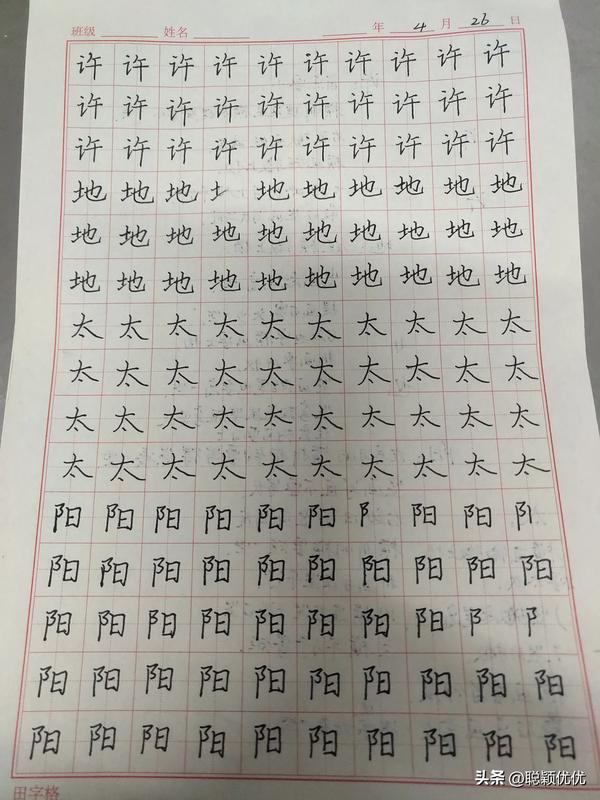 班级 姓名 年 4 月 26 日
许 许 许 许 许 许 许 许 许 许
许 许 许 许 许 许 许 许 许 许
许 许 许 许 许 许 许 许 许 许
地 地 地 地 地 地 地 地 地
地 地 地 地 地 地 地 地 地 地
地 地 地 地 地 地 地 地 地 地
太 太 太 太 太 太 太 太 太 太
太 太 太 太 太 太 太 太 太 太
太 太 太 太 太 太 太 太 太 太
太 太 太 太 太 太 太 太 太 太
阳 阳 阳 阳 阳 阳 阝 阳 阳 阝
阳 阳 阳 阳 阳 阳 阳 阳 阳 阳
阳 阳 阳 阳 阳 阳 阳 阳 阝 阝
阳 阳 阳 阳 阳 阳 阳 阳 阳 阳
阳 阳 阳 阳 阳 阳 阳 阳 阳 阳
田字格
头条 @聪颖优优